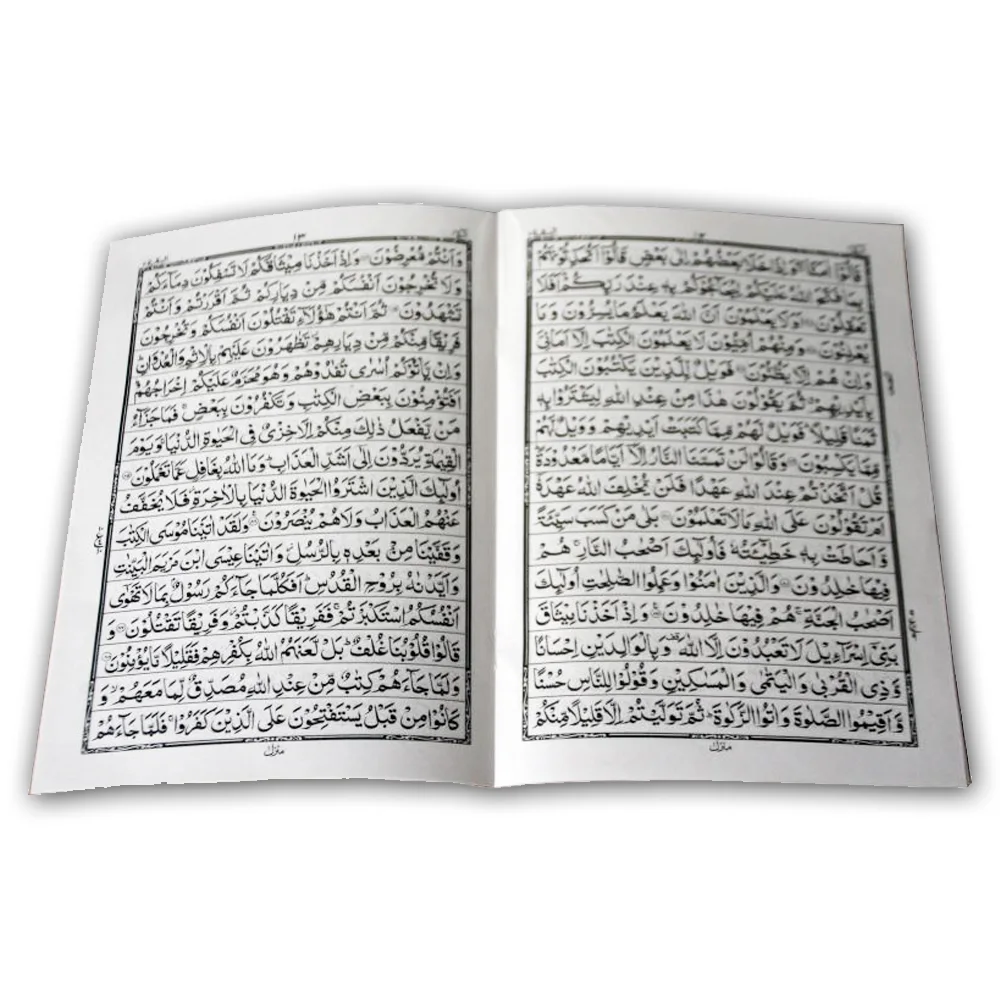 ١٢
قَالُوْٓا اٰمَنَّا ۚ وَاِذَا خَلَا بَعْضُهُمْ اِلٰى بَعْضٍ قَالُوْٓا اَتُحَدِّثُوْنَهُمْ
بِمَا فَتَحَ اللّٰهُ عَلَيْكُمْ لِيُحَآجُّوْكُمْ بِهٖ عِنْدَ رَبِّكُمْ ؕ اَفَلَا
تَعْقِلُوْنَ اَوَلَا يَعْلَمُوْنَ اَنَّ اللّٰهَ يَعْلَمُ مَا يُسِرُّوْنَ وَمَا
يُعْلِنُوْنَ وَمِنْهُمْ اُمِّيُّوْنَ لَا يَعْلَمُوْنَ الْكِتٰبَ اِلَّآ اَمَانِىَّ
وَاِنْ هُمْ اِلَّا يَظُنُّوْنَ فَوَيْلٌ لِّلَّذِيْنَ يَكْتُبُوْنَ الْكِتٰبَ
بِاَيْدِيْهِمْ ۗ ثُمَّ يَقُوْلُوْنَ هٰذَا مِنْ عِنْدِ اللّٰهِ لِيَشْتَرُوْا بِهٖ
ثَمَنًا قَلِيْلًا ؕ فَوَيْلٌ لَّهُمْ مِّمَّا كَتَبَتْ اَيْدِيْهِمْ وَوَيْلٌ لَّهُمْ
مِّمَّا يَكْسِبُوْنَ وَقَالُوْا لَنْ تَمَسَّنَا النَّارُ اِلَّآ اَيَّامًا مَّعْدُوْدَةً ؕ
قُلْ اَتَّخَذْتُمْ عِنْدَ اللّٰهِ عَهْدًا فَلَنْ يُّخْلِفَ اللّٰهُ عَهْدَهٗٓ
اَمْ تَقُوْلُوْنَ عَلَى اللّٰهِ مَا لَا تَعْلَمُوْنَ بَلٰى مَنْ كَسَبَ سَيِّئَةً
وَّاَحَاطَتْ بِهٖ خَطِيْٓئَتُهٗ فَاُولٰٓئِكَ اَصْحٰبُ النَّارِ ۚ هُمْ
فِيْهَا خٰلِدُوْنَ وَالَّذِيْنَ اٰمَنُوْا وَعَمِلُوا الصّٰلِحٰتِ اُولٰٓئِكَ
اَصْحٰبُ الْجَنَّةِ ۚ هُمْ فِيْهَا خٰلِدُوْنَ وَاِذْ اَخَذْنَا مِيْثَاقَ
بَنِىْٓ اِسْرَآءِيْلَ لَا تَعْبُدُوْنَ اِلَّا اللّٰهَ وَبِالْوَالِدَيْنِ اِحْسَانًا
وَّذِى الْقُرْبٰى وَالْيَتٰمٰى وَالْمَسٰكِيْنِ وَقُوْلُوْا لِلنَّاسِ حُسْنًا
وَّاَقِيْمُوا الصَّلٰوةَ وَاٰتُوا الزَّكٰوةَ ؕ ثُمَّ تَوَلَّيْتُمْ اِلَّا قَلِيْلًا مِّنْكُمْ
منزل
١٣
وَاَنْتُمْ مُّعْرِضُوْنَ وَاِذْ اَخَذْنَا مِيْثَاقَكُمْ لَا تَسْفِكُوْنَ دِمَآءَكُمْ
وَلَا تُخْرِجُوْنَ اَنْفُسَكُمْ مِّنْ دِيَارِكُمْ ثُمَّ اَقْرَرْتُمْ وَاَنْتُمْ
تَشْهَدُوْنَ ثُمَّ اَنْتُمْ هٰٓؤُلَآءِ تَقْتُلُوْنَ اَنْفُسَكُمْ وَتُخْرِجُوْنَ
فَرِيْقًا مِّنْكُمْ مِّنْ دِيَارِهِمْ تَظٰهَرُوْنَ عَلَيْهِمْ بِالْاِثْمِ وَالْعُدْوَانِ ؕ
وَاِنْ يَّاْتُوْكُمْ اُسٰرٰى تُفٰدُوْهُمْ وَهُوَ مُحَرَّمٌ عَلَيْكُمْ اِخْرَاجُهُمْ ؕ
اَفَتُؤْمِنُوْنَ بِبَعْضِ الْكِتٰبِ وَتَكْفُرُوْنَ بِبَعْضٍ ۚ فَمَا جَزَآءُ
مَنْ يَّفْعَلُ ذٰلِكَ مِنْكُمْ اِلَّا خِزْىٌ فِى الْحَيٰوةِ الدُّنْيَا ۚ وَيَوْمَ
الْقِيٰمَةِ يُرَدُّوْنَ اِلٰٓى اَشَدِّ الْعَذَابِ ؕ وَمَا اللّٰهُ بِغَافِلٍ عَمَّا تَعْمَلُوْنَ
اُولٰٓئِكَ الَّذِيْنَ اشْتَرَوُا الْحَيٰوةَ الدُّنْيَا بِالْاٰخِرَةِ ۫ فَلَا يُخَفَّفُ
عَنْهُمُ الْعَذَابُ وَلَا هُمْ يُنْصَرُوْنَ وَلَقَدْ اٰتَيْنَا مُوْسَى الْكِتٰبَ
وَقَفَّيْنَا مِنْۢ بَعْدِهٖ بِالرُّسُلِ ۫ وَاٰتَيْنَا عِيْسَى ابْنَ مَرْيَمَ الْبَيِّنٰتِ
وَاَيَّدْنٰهُ بِرُوْحِ الْقُدُسِ ؕ اَفَكُلَّمَا جَآءَكُمْ رَسُوْلٌۢ بِمَا لَا تَهْوٰٓى
اَنْفُسُكُمُ اسْتَكْبَرْتُمْ ۚ فَفَرِيْقًا كَذَّبْتُمْ ۫ وَفَرِيْقًا تَقْتُلُوْنَ وَ
قَالُوْا قُلُوْبُنَا غُلْفٌ ؕ بَلْ لَّعَنَهُمُ اللّٰهُ بِكُفْرِهِمْ فَقَلِيْلًا مَّا يُؤْمِنُوْنَ
وَلَمَّا جَآءَهُمْ كِتٰبٌ مِّنْ عِنْدِ اللّٰهِ مُصَدِّقٌ لِّمَا مَعَهُمْ ۙ وَ
كَانُوْا مِنْ قَبْلُ يَسْتَفْتِحُوْنَ عَلَى الَّذِيْنَ كَفَرُوْا ۚ فَلَمَّا جَآءَهُمْ
منزل